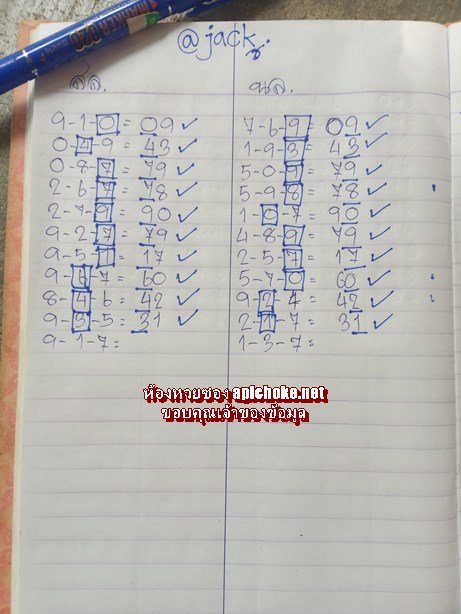 @jack
7-6-9 = 09 ✓
9-1-0 = 09 ✓
0-4-9 = 43 ✓
1-9-3 = 43 ✓
0-8-7 = 79 ✓
5-0-9 = 79 ✓
2-6-7 = 78 ✓
5-9-8 = 78 ✓
2-7-9 = 90 ✓
1-0-7 = 90 ✓
9-2-7 = 79 ✓
4-8-9 = 79 ✓
9-5-1 = 17 ✓
2-5-7 = 17 ✓
9-6-7 = 60 ✓
5-7-0 = 60 ✓
8-4-6 = 42 ✓
9-2-4 = 42 ✓
9-3-5 = 31 ✓
2-1-7 = 31 ✓
9-1-7 =
1-3-7 =
ห้องหวยซอง apichoke.net
ขอบคุณเจ้าของข้อมูล